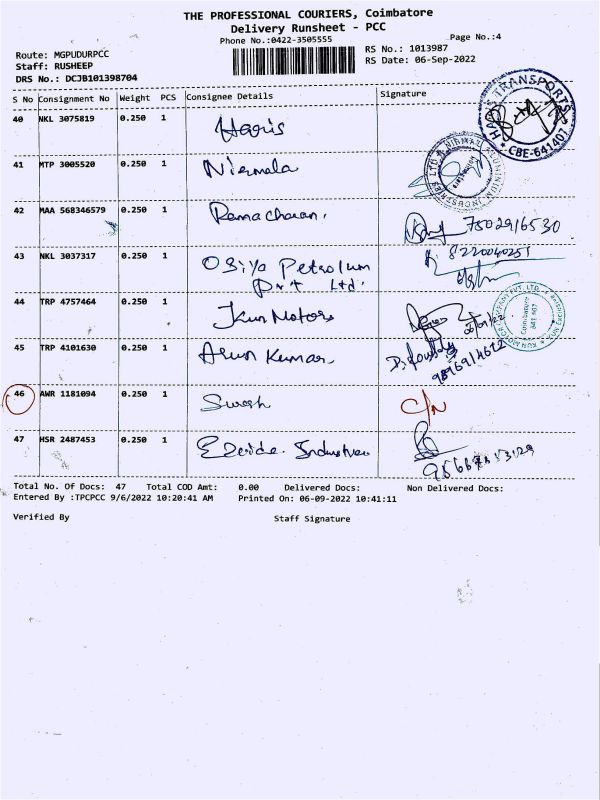 THE PROFESSIONAL COURIERS, Coimbatore
Delivery Runsheet - PCC
Phone No.:0422-3505555
Page No.:4
Route: MGPUDURPCC
Staff: RUSHEEP
DRS No.: DCJB101398704
RS No.: 1013987
RS Date: 06-Sep-2022
S No Consignment No Weight PCS Consignee Details Signature
40 NKL 3075819 0.250 1 Haris
HARI TRANSPORTS
CBE-641407
41 MTP 3005520 0.250 1 Nirmala
42 MAA 568346579 0.250 1 Ramacharan. 7502916530
43 NKL 3037317 0.250 1 Osiya Petrolum 8220040251
Pvt Ltd.
44 TRP 4757464 0.250 1 Jkun Motors
Coimbatore
641 407
45 TRP 4101630 0.250 1 Arun Kumar
46 AWR 1181094 0.250 1 Suresh C/N
47 HSR 2487453 0.250 1 Industries
Total No. Of Docs: 47 Total COD Amt: 0.00 Delivered Docs: Non Delivered Docs:
Entered By :TPCPCC 9/6/2022 10:20:41 AM Printed On: 06-09-2022 10:41:11
Verified By Staff Signature